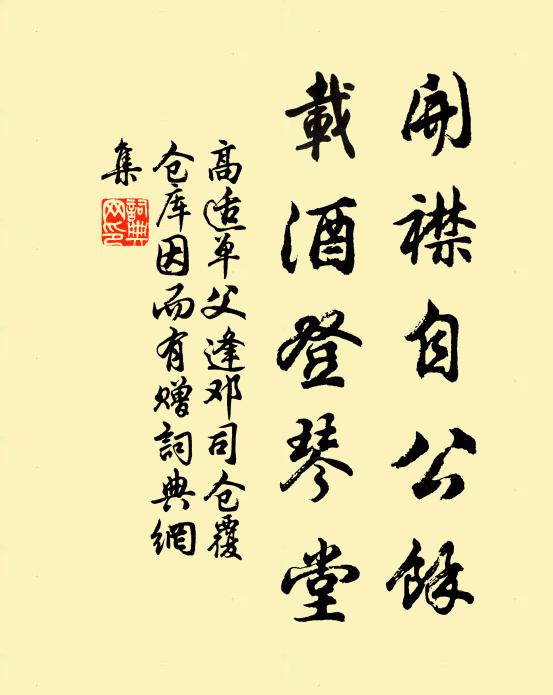 開襟自公餘
載酒登琴堂
高适单父逢邓司仓覆
仓库因而有赠詞典網
集
詞典网印